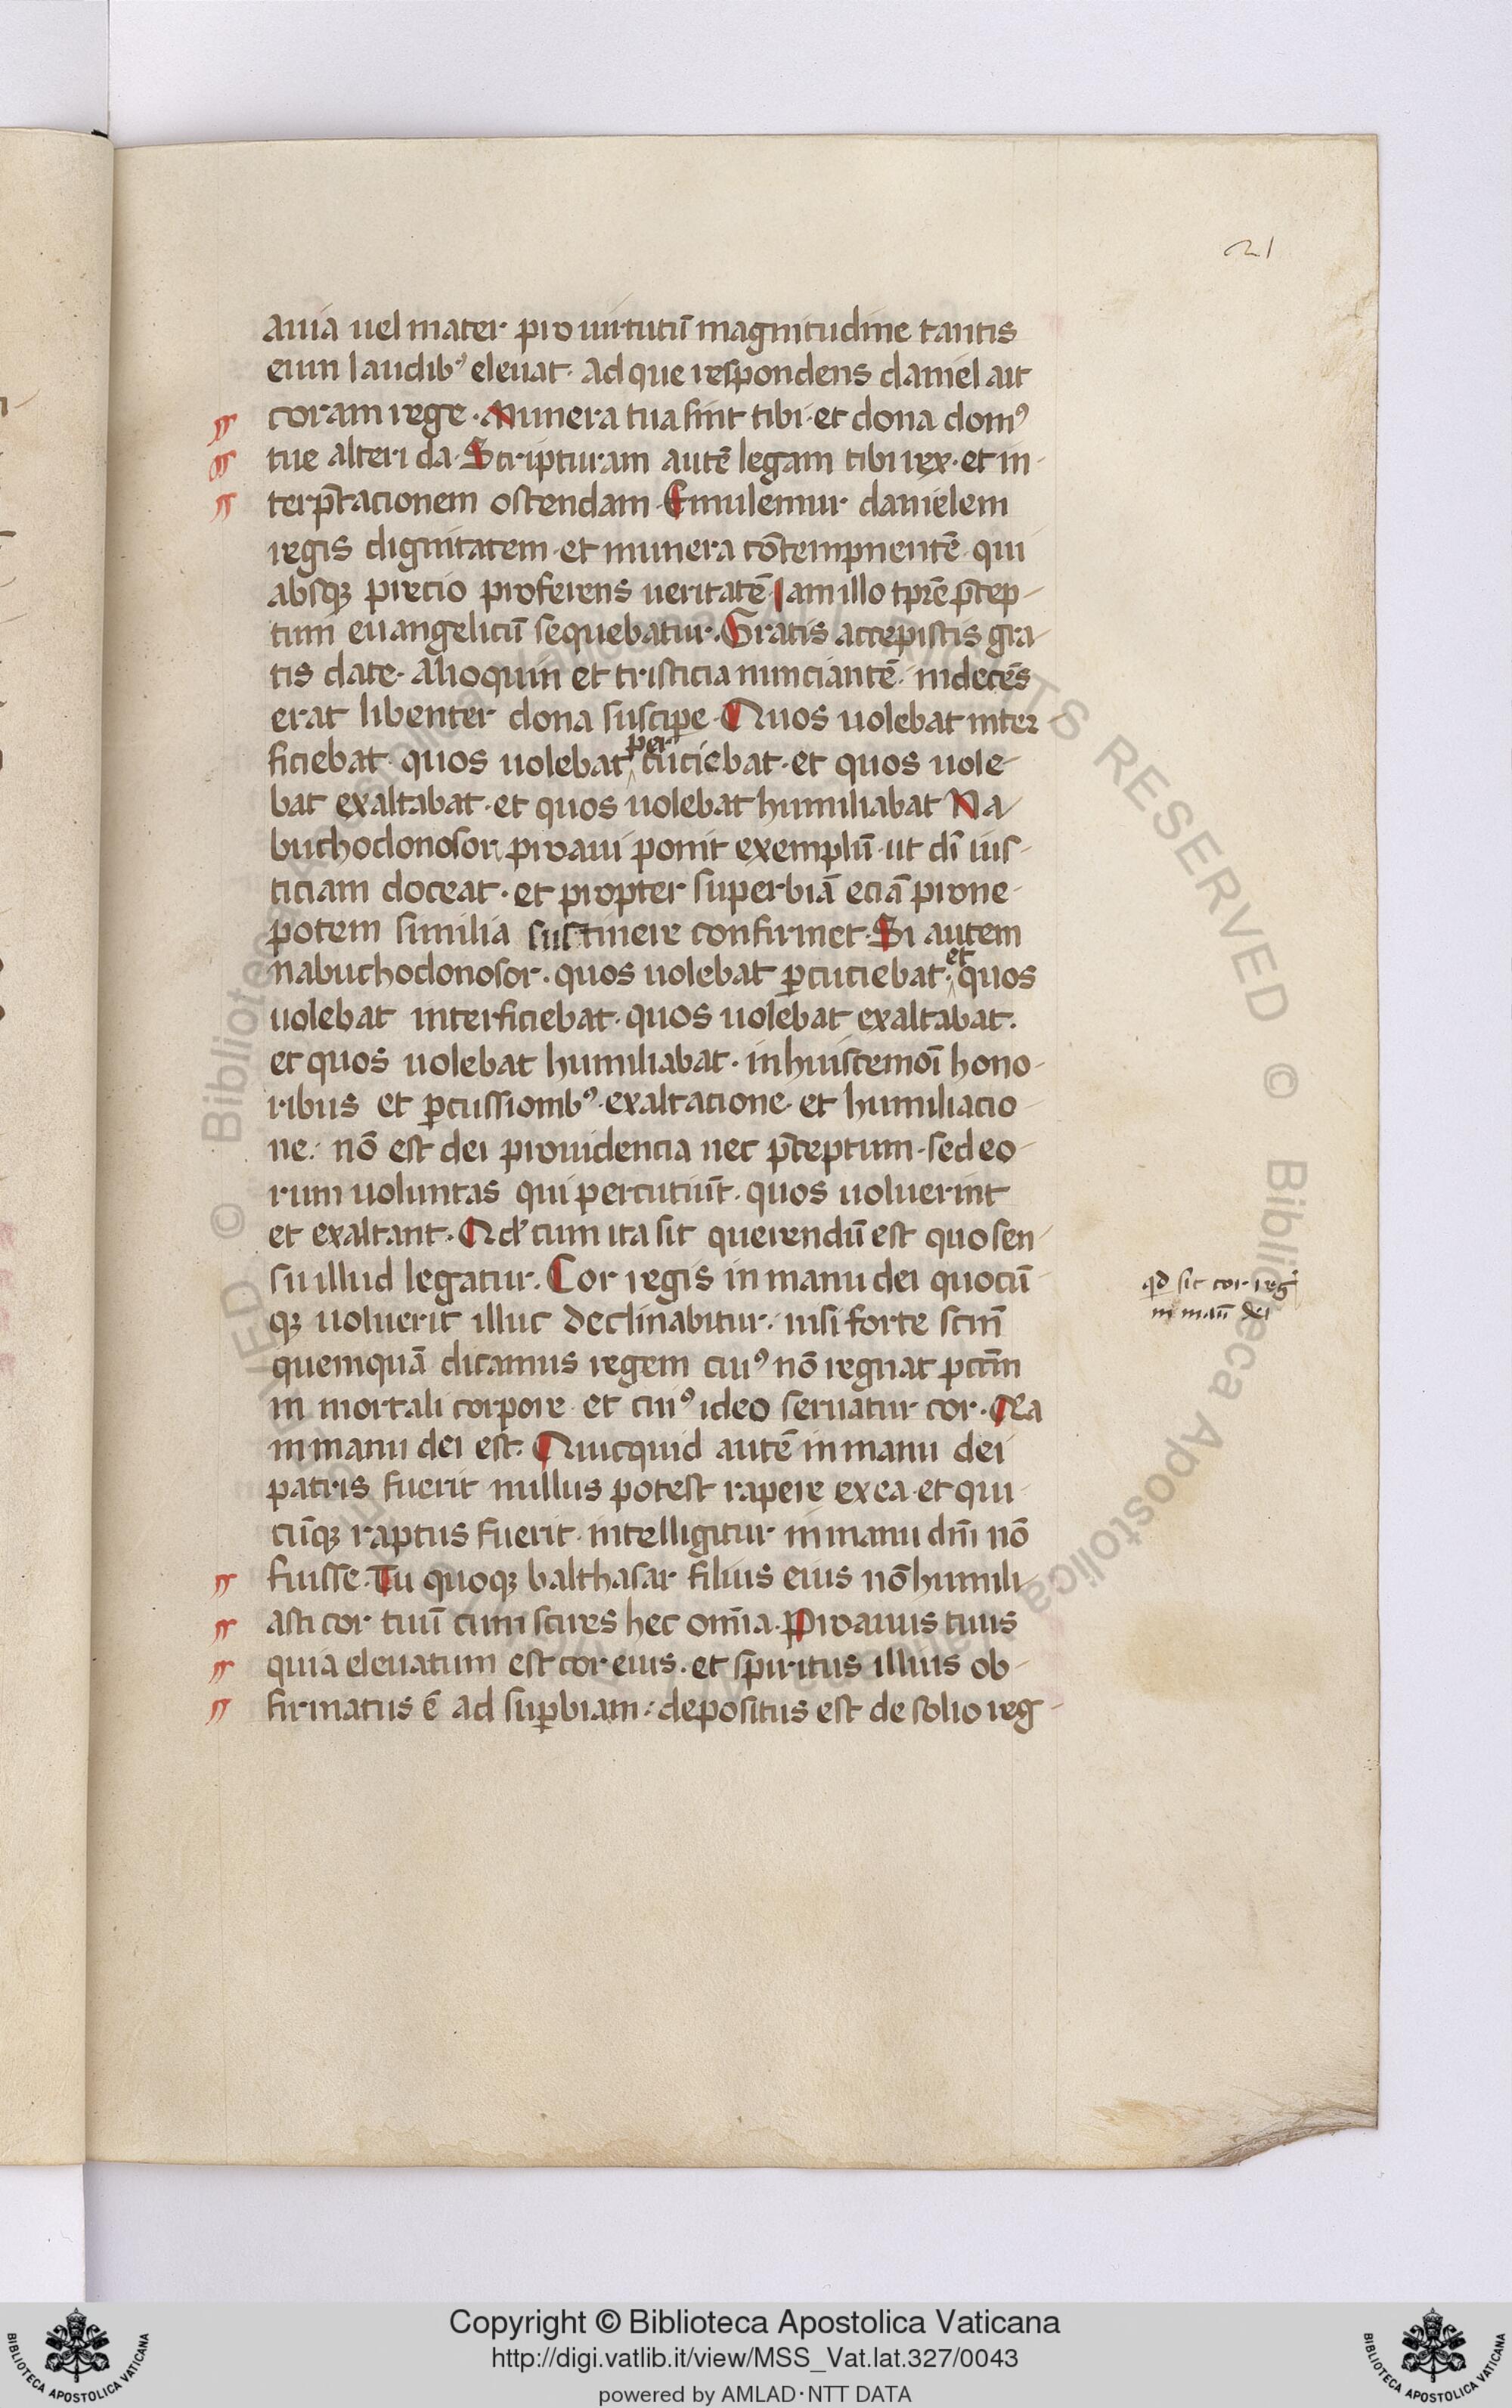 21
auia uel mater pro uirtutū magnitudine tantis
eum laudibꝰ eleuat. ad que respondens daniel ait
coram rege. Munera tua sint tibi. et dona domꝰ
tue alteri da. Scripturam autē legam tibi rex. et in-
terp̄tacionem ostendam. Emulemur danielem
regis dignitatem. et munera cōtempnentē. qui
absqꝫ precio proferens ueritatē. Iam illo tp̄re p̄cep-
tum euangelicū sequebatur. Gratis accepistis gra-
tis date. Alioquin et tristicia nunciantē. indecēs
erat libenter dona suscipe. Quos uolebat inter
ficiebat. quos uolebat percuciebat. et quos uole-
bat exaltabat. et quos uolebat humiliabat Na-
buchodonosor. proaui ponit exemplū. ut dī ius-
ticiam doceat. et propter superbiā eciā prone-
potem similia sustinere confirmet. Si autem
nabuchodonosor. quos uolebat ꝑcuciebat. et quos
uolebat interficiebat. quos uolebat exaltabat.
et quos uolebat humiliabat. in huiuscemōi hono-
ribus et ꝑcussionibꝰ. exaltacione. et humiliacio-
ne. nō est dei prouidencia nec p̄ceptum. sed eo-
rum uoluntas qui percutiūt. quos uoluerint
et exaltant. Qd' cum ita sit querendū est quo sen-
su illud legatur. Cor regis in manu dei quocū-
qꝫ uoluerit illuc declinabitur. nisi forte scm̄
quemquā dicamus regem cuiꝰ nō regnat pctm̄
in mortali corpore. et cuiꝰ ideo seruatur cor. Qꝛa
in manu dei est. Quicquid autē in manu dei
patris fuerit nullus potest rapere ex ea. et qui-
cūqꝫ raptus fuerit. intelligitur in manu dnī nō
fuisse. Tu quoqꝫ balthasar filius eius nō humili-
asti cor tuū cum scires hec om̄ia. Proauus tuus
quia eleuatum est cor eius. et spiritus illius ob-
firmatus ē ad suꝑbiam. depositus est de solio reg-
qd sit cor reg
in manū dei
Copyright © Biblioteca Apostolica Vaticana
http://digi.vatlib.it/view/MSS_Vat.lat.327/0043
powered by AMLAD·NTT DATA